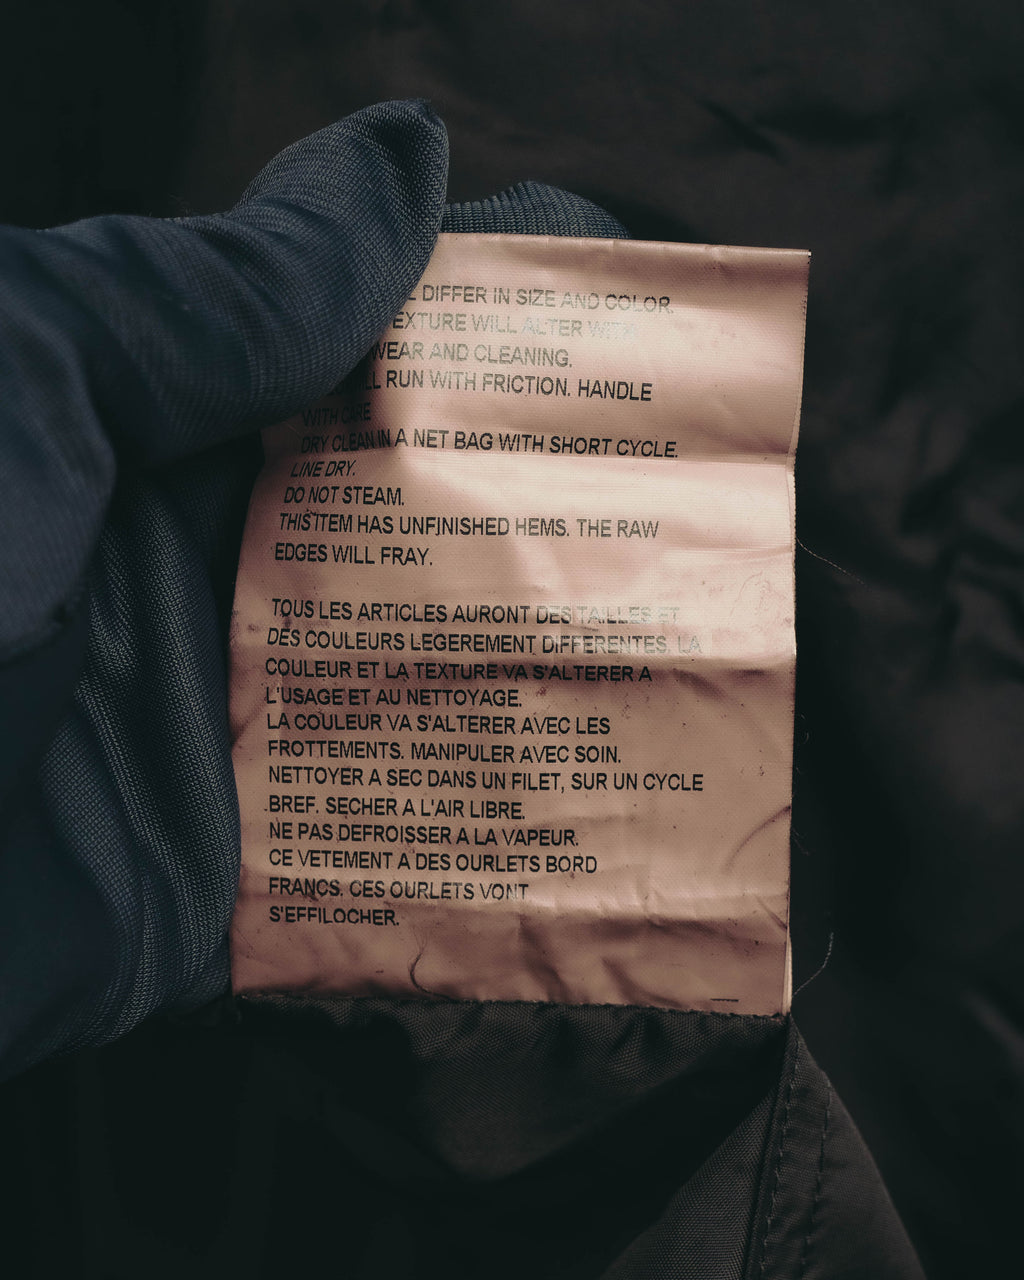 DIFFER IN SIZE AND COLOR.
WILL ALTER WITH
WEAR AND CLEANING.
RUN WITH FRICTION. HANDLE
WITH CARE
DRY CLEAN IN A NET BAG WITH SHORT CYCLE.
LINE DRY.
DO NOT STEAM.
THIS ITEM HAS UNFINISHED HEMS. THE RAW
EDGES WILL FRAY.
TOUS LES ARTICLES AURONT DES TAILLES ET
DES COULEURS LEGEREMENT DIFFERENTES. LA
COULEUR ET LA TEXTURE VA S'ALTERER A
L'USAGE ET AU NETTOYAGE.
LA COULEUR VA S'ALTERER AVEC LES
FROTTEMENTS. MANIPULER AVEC SOIN.
NETTOYER A SEC DANS UN FILET, SUR UN CYCLE
BREF. SECHER A L'AIR LIBRE.
NE PAS DEFROISSER A LA VAPEUR.
CE VETEMENT A DES OURLETS BORD
FRANCS. CES OURLETS VONT
S'EFFILOCHER.